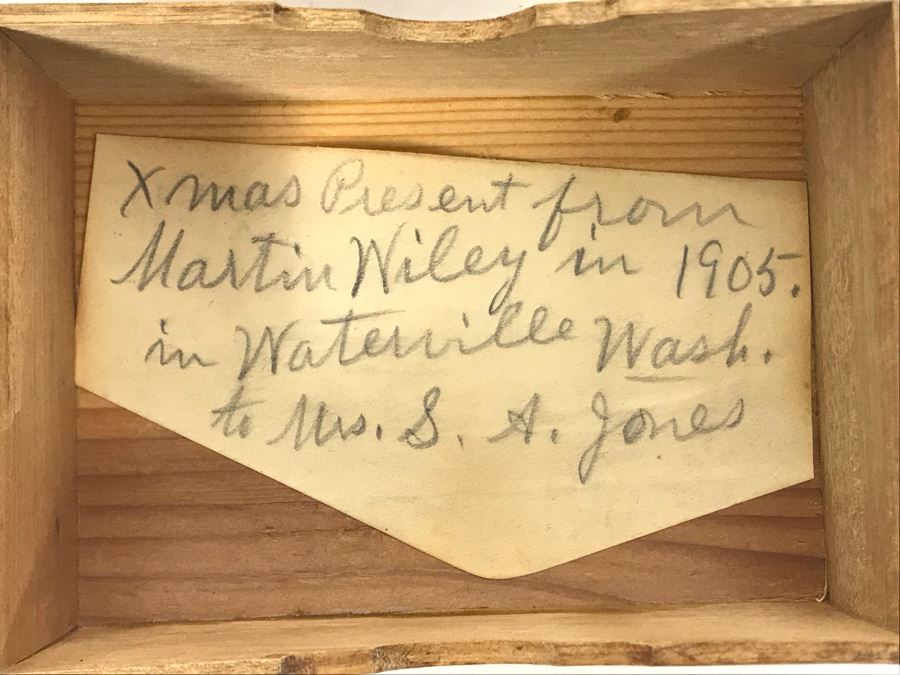 Xmas Present from
Martin Wiley in 1905.
in Waterville Wash.
to Mrs. S. A. Jones